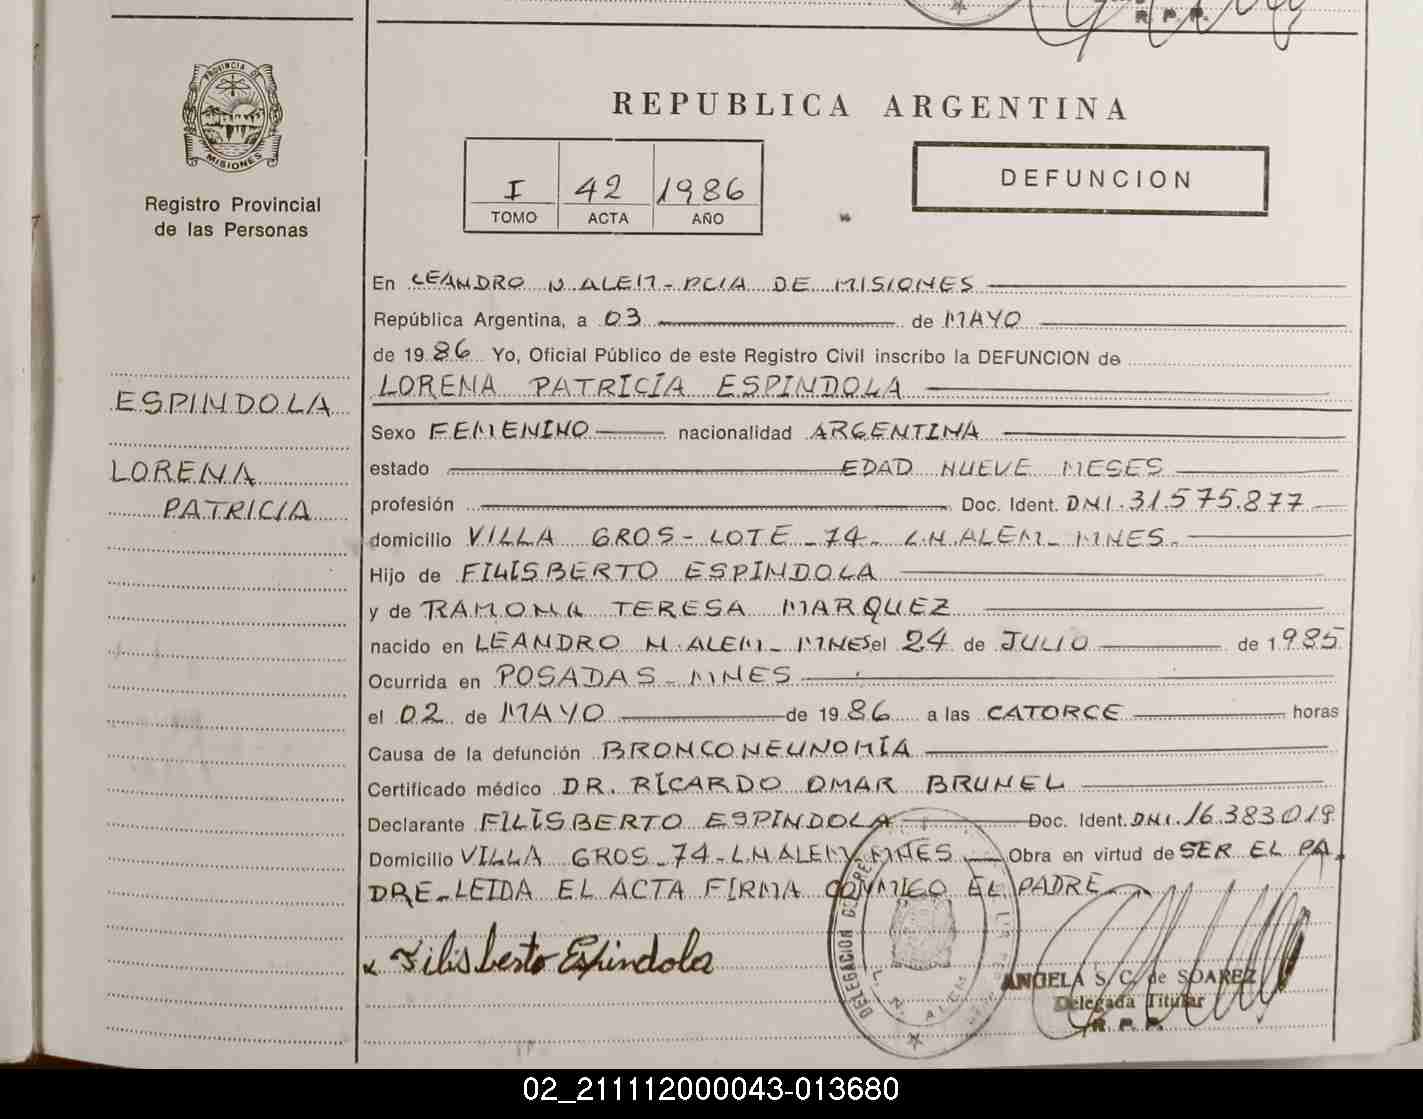 R. P. P.
PROVINCIA DE
MISIONES
Registro Provincial
de las Personas
REPUBLICA ARGENTINA
I 42 1986
TOMO ACTA AÑO
DEFUNCION
ESPINDOLA
LORENA
PATRICIA
En LEANDRO N ALEM - PCIA DE MISIONES
República Argentina, a 03 de MAYO
de 1986 Yo, Oficial Público de este Registro Civil inscribo la DEFUNCION de
LORENA PATRICIA ESPINDOLA
Sexo FEMENINO nacionalidad ARGENTINA
estado EDAD NUEVE MESES
profesión Doc. Ident. DNI. 31.575.877
domicilio VILLA GROS - LOTE - 74 - L.N. ALEM - MNES.
Hijo de FILISBERTO ESPINDOLA
y de RAMONA TERESA MARQUEZ
nacido en LEANDRO N. ALEM - MNES el 24 de JULIO de 1985
Ocurrida en POSADAS - MNES
el 02 de MAYO de 1986 a las CATORCE horas
Causa de la defunción BRONCONEUNOMÍA
Certificado médico DR. RICARDO OMAR BRUNEL
Declarante FILISBERTO ESPINDOLA Doc. Ident. DNI. 16.383.019
Domicilio VILLA GROS - 74 - L.N ALEM - MNES Obra en virtud de SER EL PA
DRE - LEIDA EL ACTA FIRMA CONMIGO EL PADRE
x Filisberto Espindola
DELEGACION
L. N. ALEM
ANGELA S. C. de SOAREZ
Delegada Titular
R. P. P.
02_211112000043-013680